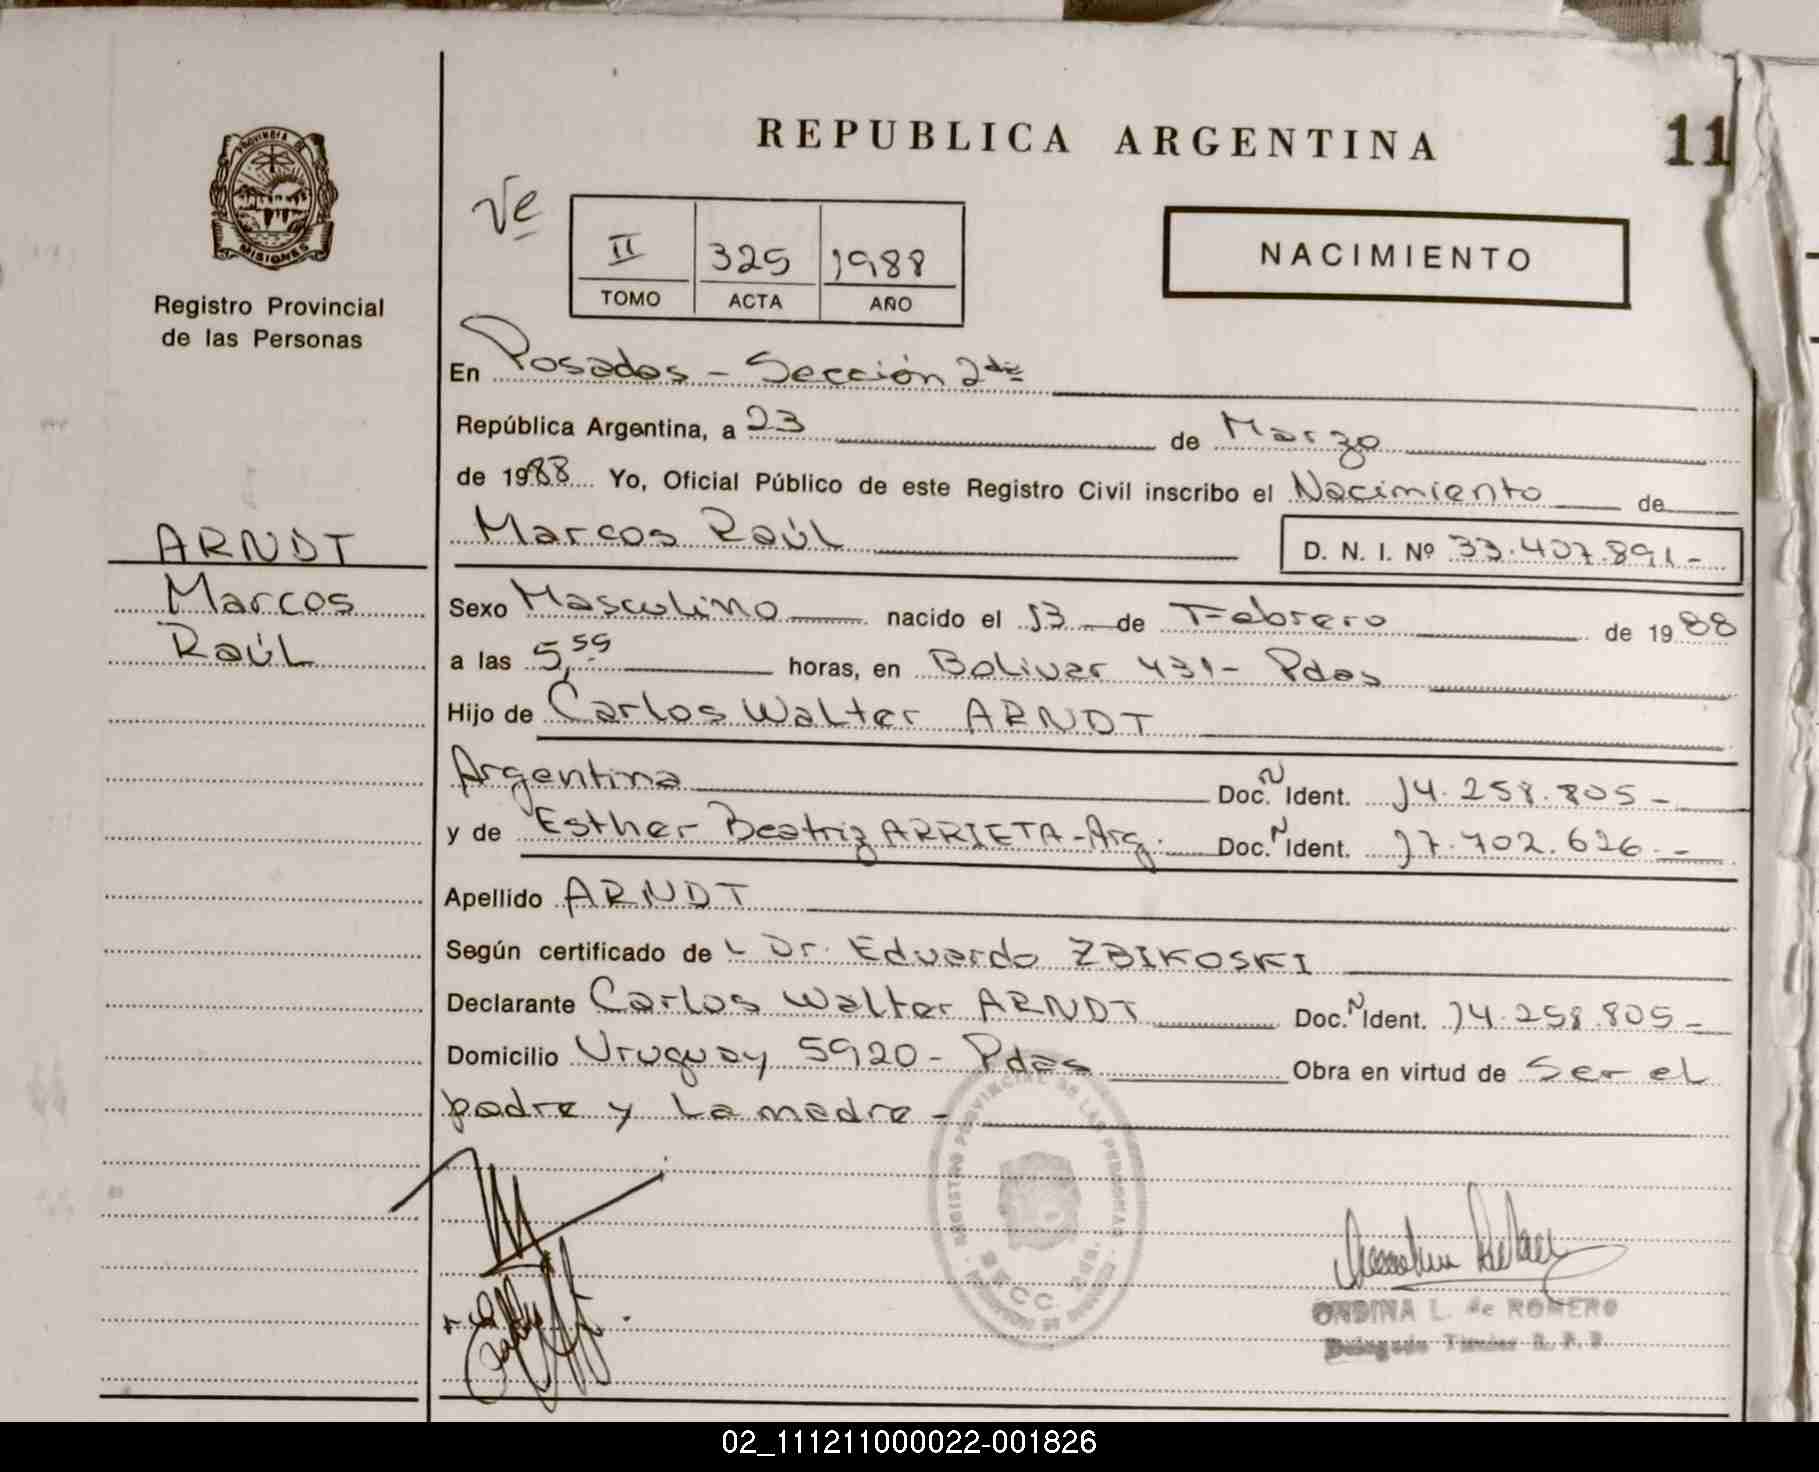 REPUBLICA ARGENTINA
11
PROVINCIA DE
MISIONES
Registro Provincial
de las Personas
Ve
II 325 1988
TOMO ACTA AÑO
NACIMIENTO
En Posadas - Sección 2da
República Argentina, a 23 de Marzo
de 1988 Yo, Oficial Público de este Registro Civil inscribo el Nacimiento de
Marcos Raúl D. N. I. Nº 33.407.891-
ARNDT
Marcos
Raúl
Sexo Masculino nacido el 13 de Febrero de 1988
a las 5,59 horas, en Bolivar 431- Pdas
Hijo de Carlos Walter ARNDT
Argentina Doc. Ident. 14.258.805-
y de Esther Beatriz ARRIETA-Arg. Doc. Ident. 17.702.626.-
Apellido ARNDT
Según certificado de L Dr. Eduardo ZBIKOSKI
Declarante Carlos Walter ARNDT Doc. Ident. 14.258.805-
Domicilio Uruguay 5920- Pdas Obra en virtud de Ser el
padre y La madre-
REGISTRO PROVINCIAL DE LAS PERSONAS
ONDINA L. de ROMERO
02_111211000022-001826